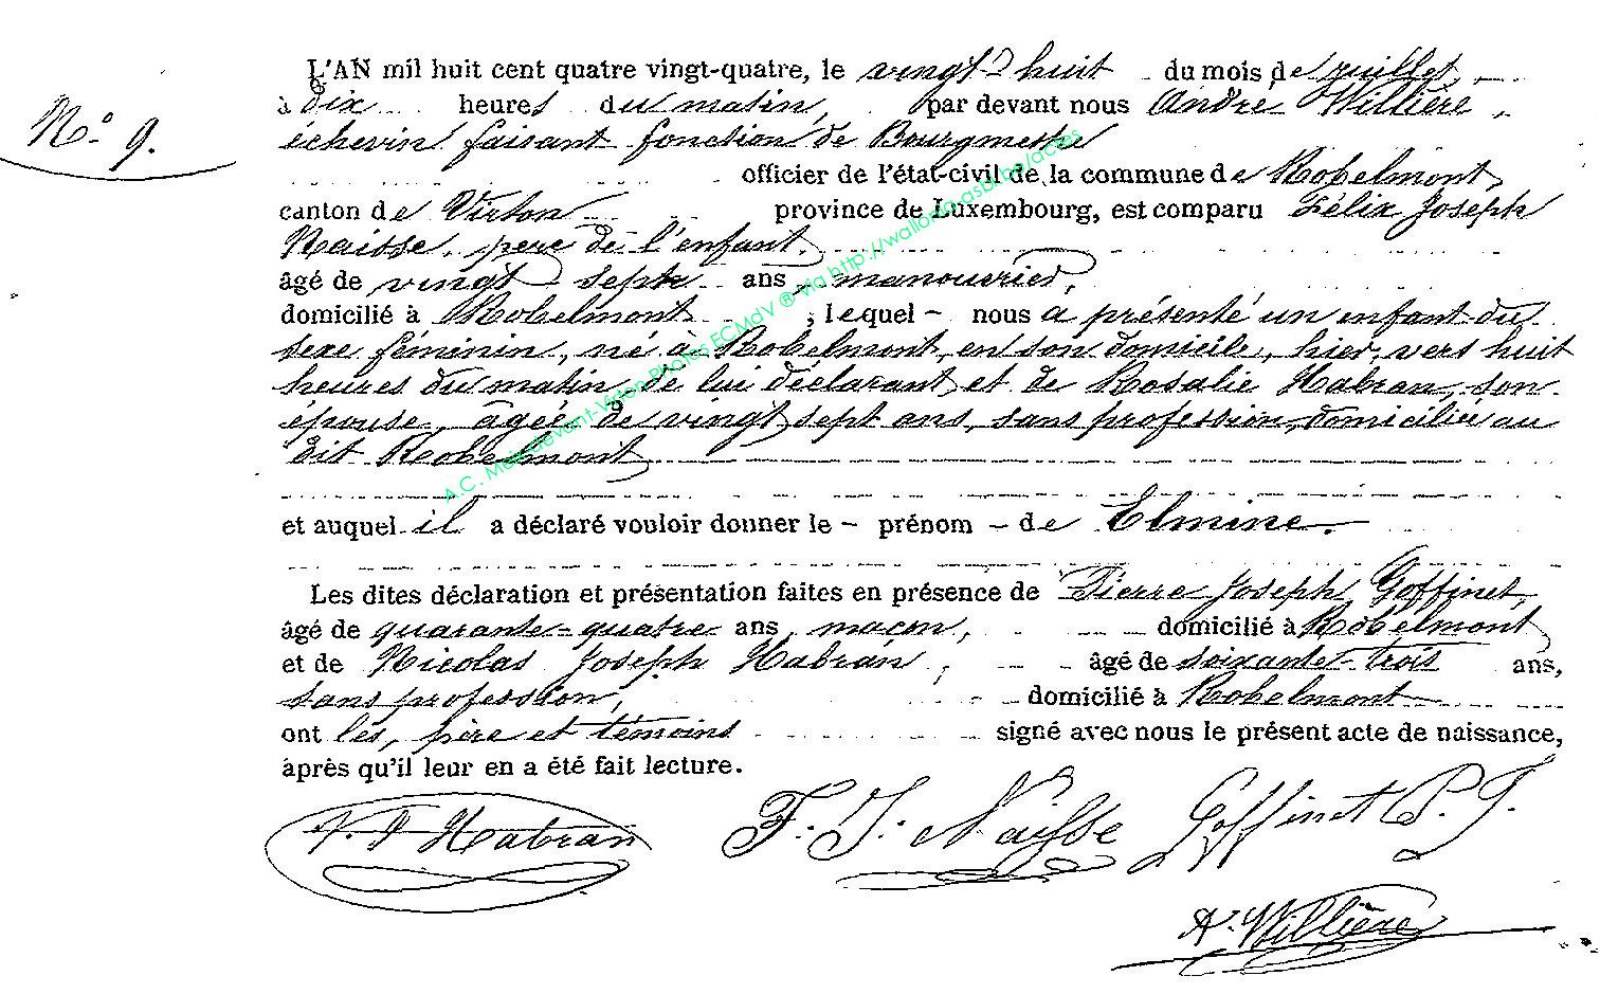 L'AN mil huit cent quatre vingt-quatre, le vingt huit du mois de juillet,
à dix heures du matin, par devant nous André Willière,
N.° 9.
échevin faisant fonction de Bourgmestre
officier de l'état-civil de la commune de Robelmont,
canton de Virton province de Luxembourg, est comparu Félix Joseph
Naisse, père de l'enfant,
âgé de vingt sept ans, manouvrier,
domicilié à Robelmont, lequel - nous a présenté un enfant du
sexe féminin, né à Robelmont, en son domicile, hier, vers huit
heures du matin, de lui déclarant et de Rosalie Habran, son
épouse, âgée de vingt sept ans, sans profession, domiciliée au
dit Robelmont
et auquel il a déclaré vouloir donner le - prénom - de Elmine.
Les dites déclaration et présentation faites en présence de Pierre Joseph Goffinet,
âgé de quarante-quatre ans, maçon, domicilié à Robelmont
et de Nicolas Joseph Habran, âgé de soixante-trois ans,
sans profession, domicilié à Robelmont
ont les, père et témoins signé avec nous le présent acte de naissance,
après qu'il leur en a été fait lecture.
Habran F. J. Naisse Goffinet P. J.
A. Willière
A.C. Meix-devant-Virton Photos ECMdV ® via http://wallonia-asbl.be/actes